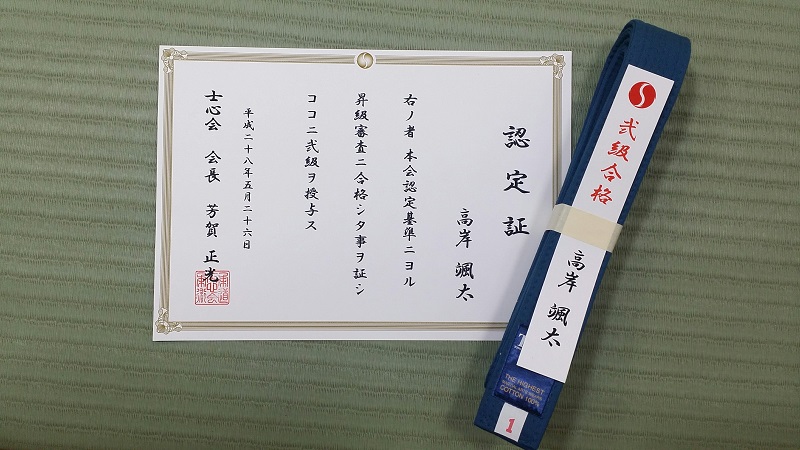 認定証
高岸 颯太
右ノ者 本会認定基準ニヨル
昇級審査ニ合格シタ事ヲ証シ
ココニ弐級ヲ授与ス
平成二十八年五月二十六日
士心会 会長 芳賀 正光
弐級合格
高岸 颯太
THE HIGHEST
COTTON 100%
1